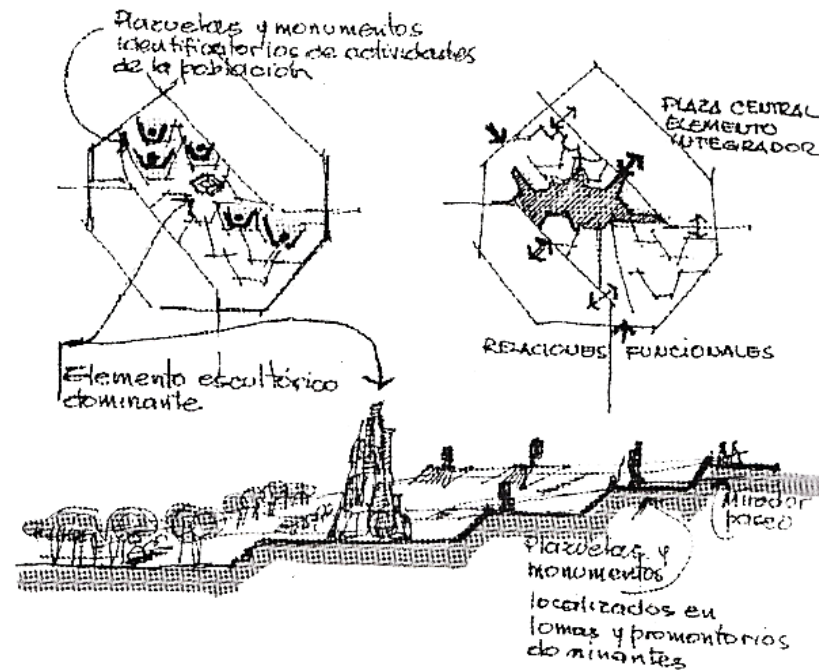 Plazuelas y monumentos
identificatorios de actividades
de la población
PLAZA CENTRAL
ELEMENTO
INTEGRADOR
RELACIONES FUNCIONALES
Elemento escultórico
dominante
Mirador
paseo
Plazuelas y
monumentos
localizados en
lomas y promontorios
dominantes